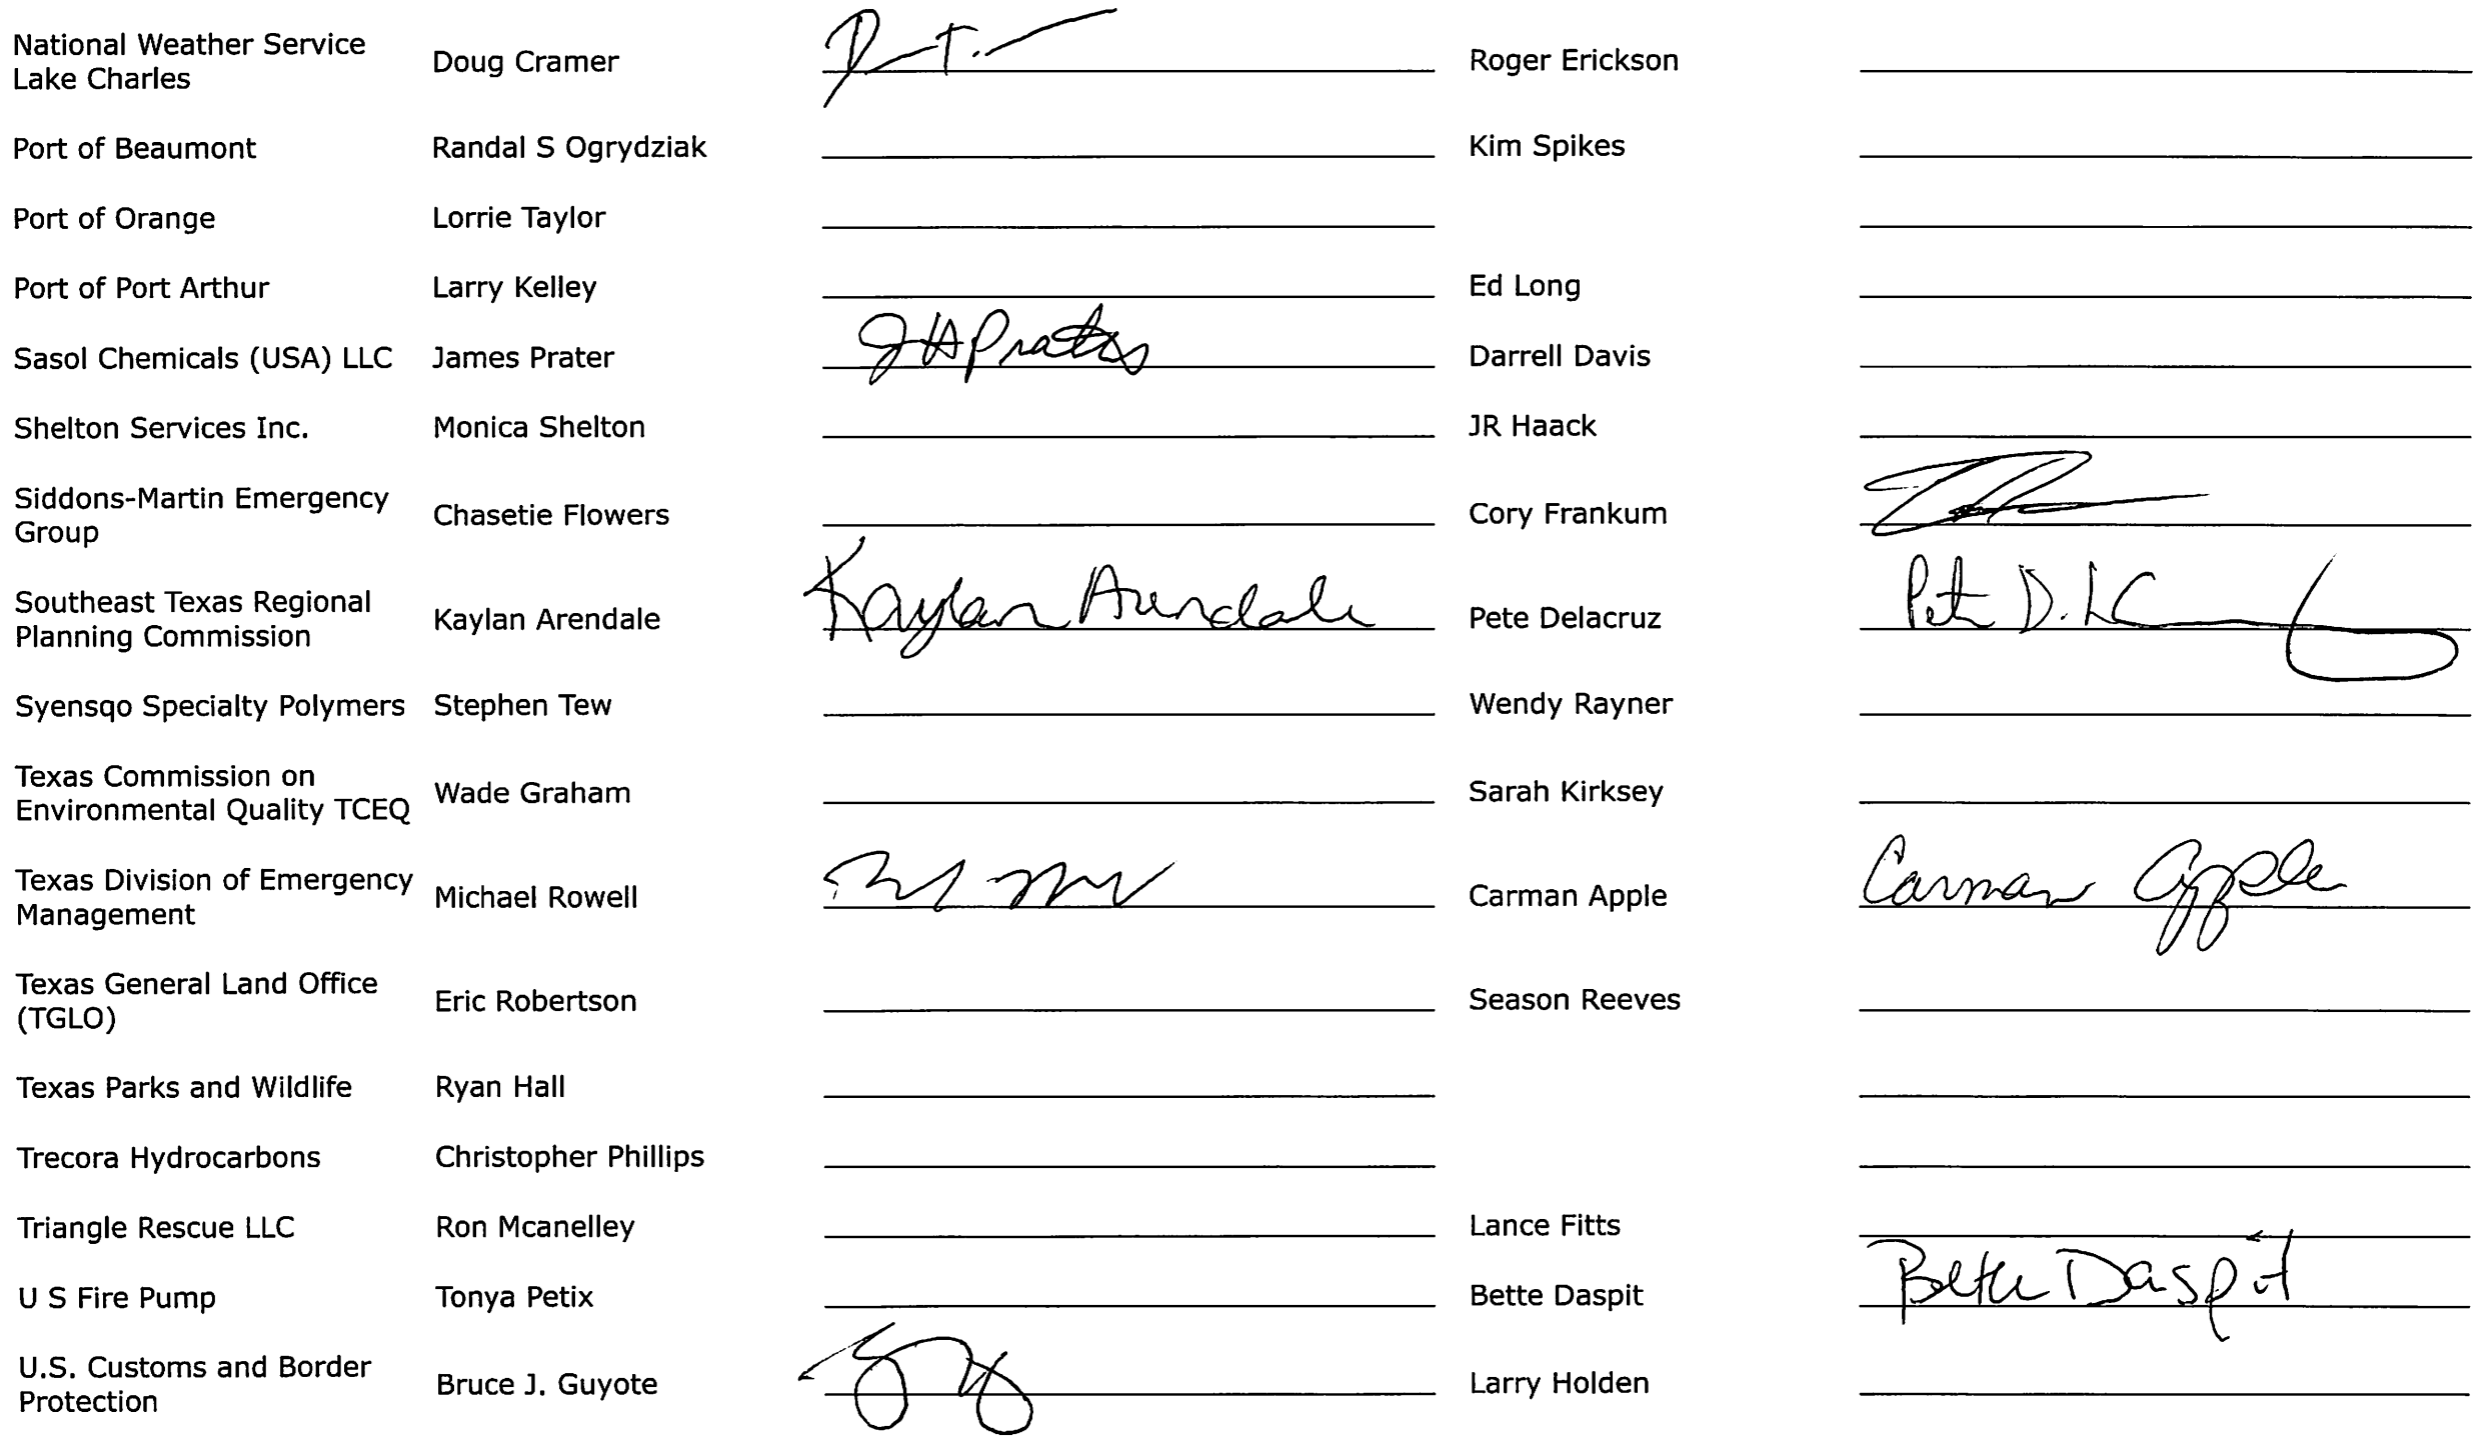 National Weather Service Lake Charles Doug Cramer Roger Erickson
Port of Beaumont Randal S Ogrydziak Kim Spikes
Port of Orange Lorrie Taylor
Port of Port Arthur Larry Kelley Ed Long
Sasol Chemicals (USA) LLC James Prater JHPrater Darrell Davis
Shelton Services Inc. Monica Shelton JR Haack
Siddons-Martin Emergency Group Chasetie Flowers Cory Frankum
Southeast Texas Regional Planning Commission Kaylan Arendale Kaylan Arendale Pete Delacruz Pete
Syensqo Specialty Polymers Stephen Tew Wendy Rayner
Texas Commission on Environmental Quality TCEQ Wade Graham Sarah Kirksey
Texas Division of Emergency Management Michael Rowell Carman Apple Carman Apple
Texas General Land Office (TGLO) Eric Robertson Season Reeves
Texas Parks and Wildlife Ryan Hall
Trecora Hydrocarbons Christopher Phillips
Triangle Rescue LLC Ron Mcanelley Lance Fitts
U S Fire Pump Tonya Petix Bette Daspit Bette Daspit
U.S. Customs and Border Protection Bruce J. Guyote Larry Holden